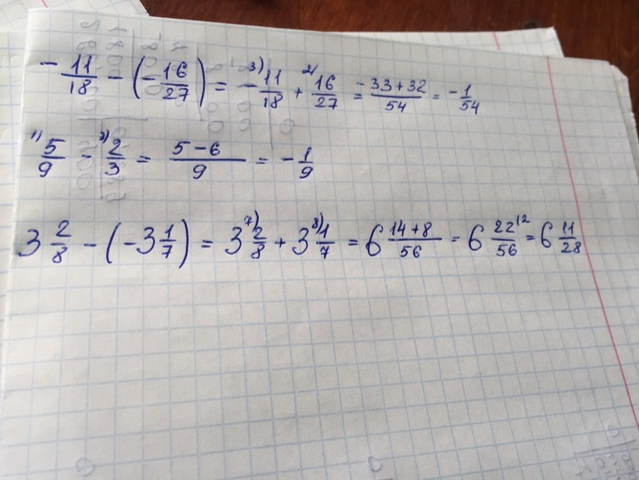 - 11/18 - (- 16/27) = - ³⁾11/18 + ²⁾16/27 = (-33+32)/54 = - 1/54
¹⁾5/9 - ³⁾2/3 = (5-6)/9 = - 1/9
3 2/8 - (-3 1/7) = 3 ⁷⁾2/8 + 3 ⁸⁾1/7 = 6 (14+8)/56 = 6 22/56 ⁽² = 6 11/28